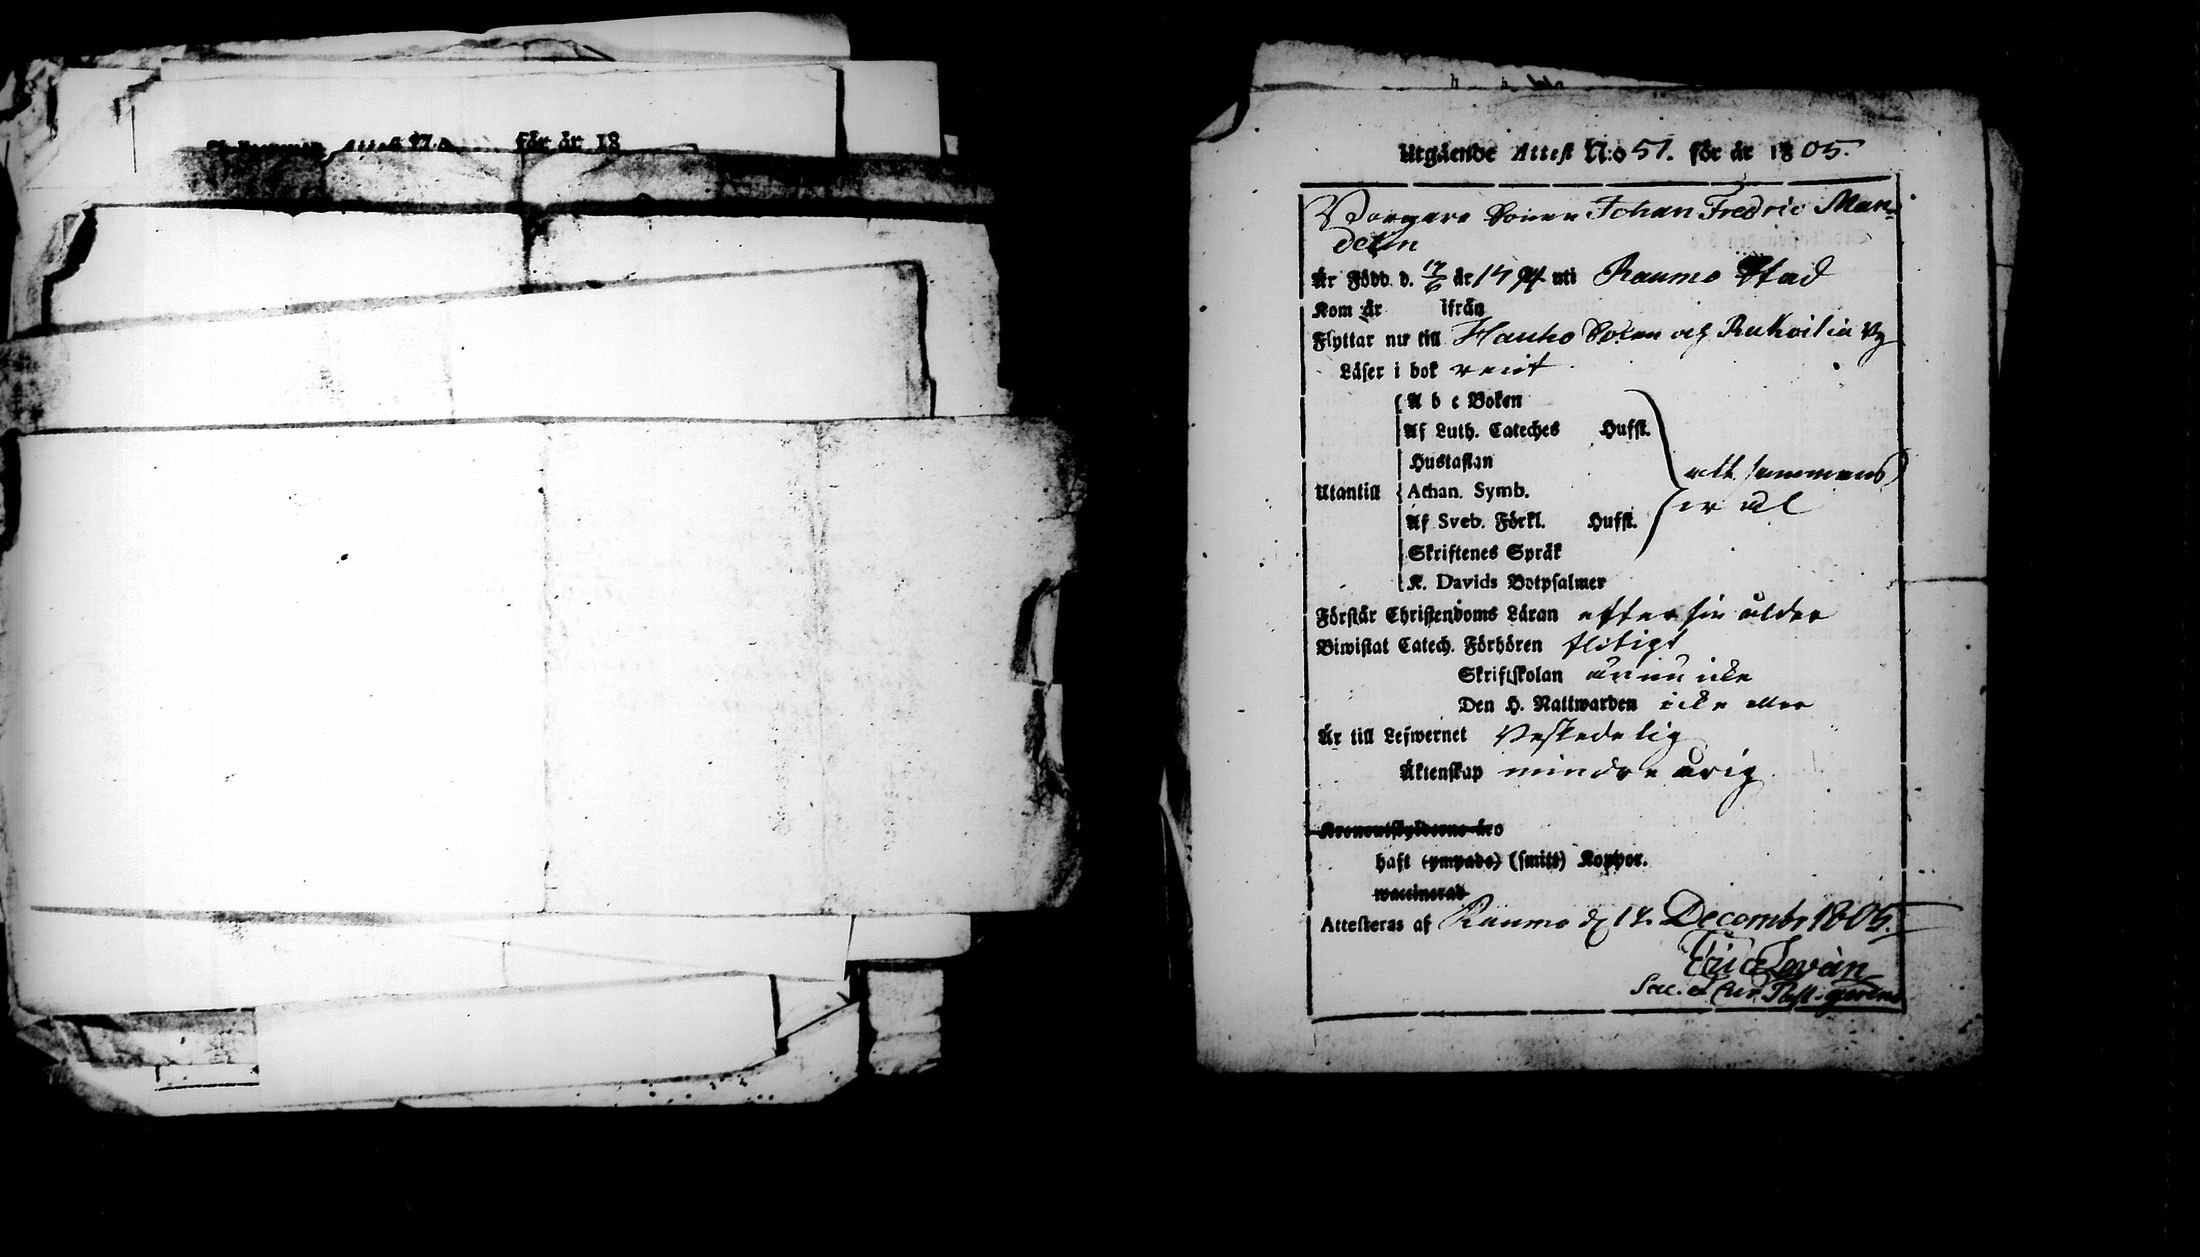 Attest N:o för år 18
Utgående Attest N:o 51. för år 1805.
Borgare Sonen Johan Fredric Man-
delin
Är Född d. 17/6 år 1794 uti Raumo Stad
Kom år ifrån
Flyttar nu till Hauho Socken och Rukoila By
Läser i bok rent
A b c Boken
Af Luth. Cateches Hufst.
Hustaflan
Utantill Athan. Symb.
Af Sveb. Förkl. Hufst.
Skriftenes Språk
K. Davids Botpsalmer
allt sammans
er väl
Förstår Christendoms Läran efter sin ålder
Biwistat Catech. Förhören flitigt
Skriftskolan ännu icke
Den H. Nattwarden icke eller
Är till Lefwernet Beskedelig
Äktenskap mindre årig
Kronoutskylderne äro
haft (ympade) (smitt) Koppor.
waccinerad
Attesteras af Raumo d. 12. Decembr 1805.
Eric Levàn
Sac. et Cur. Past. gerens